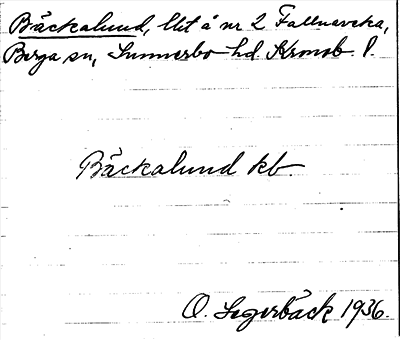 Bäckalund, lht å nr 2 Fallnaveka,
Berga sn, Sunnerbo hd Kronob. l.
Bäckalund kb
O. Segerbäck 1936.